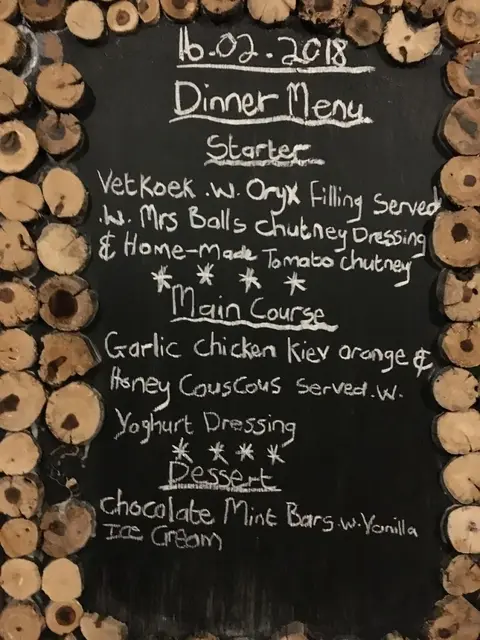 16.02.2018
Dinner Menu
Starter
Vetkoek .w. Oryx Filling Served
.w. Mrs Balls Chutney Dressing
& Home-Made Tomato Chutney
* * * *
Main Course
Garlic Chicken Kiev orange &
Honey CousCous Served .w.
Yoghurt Dressing
* * * *
Dessert
Chocolate Mint Bars .w. Vanilla
Ice Cream